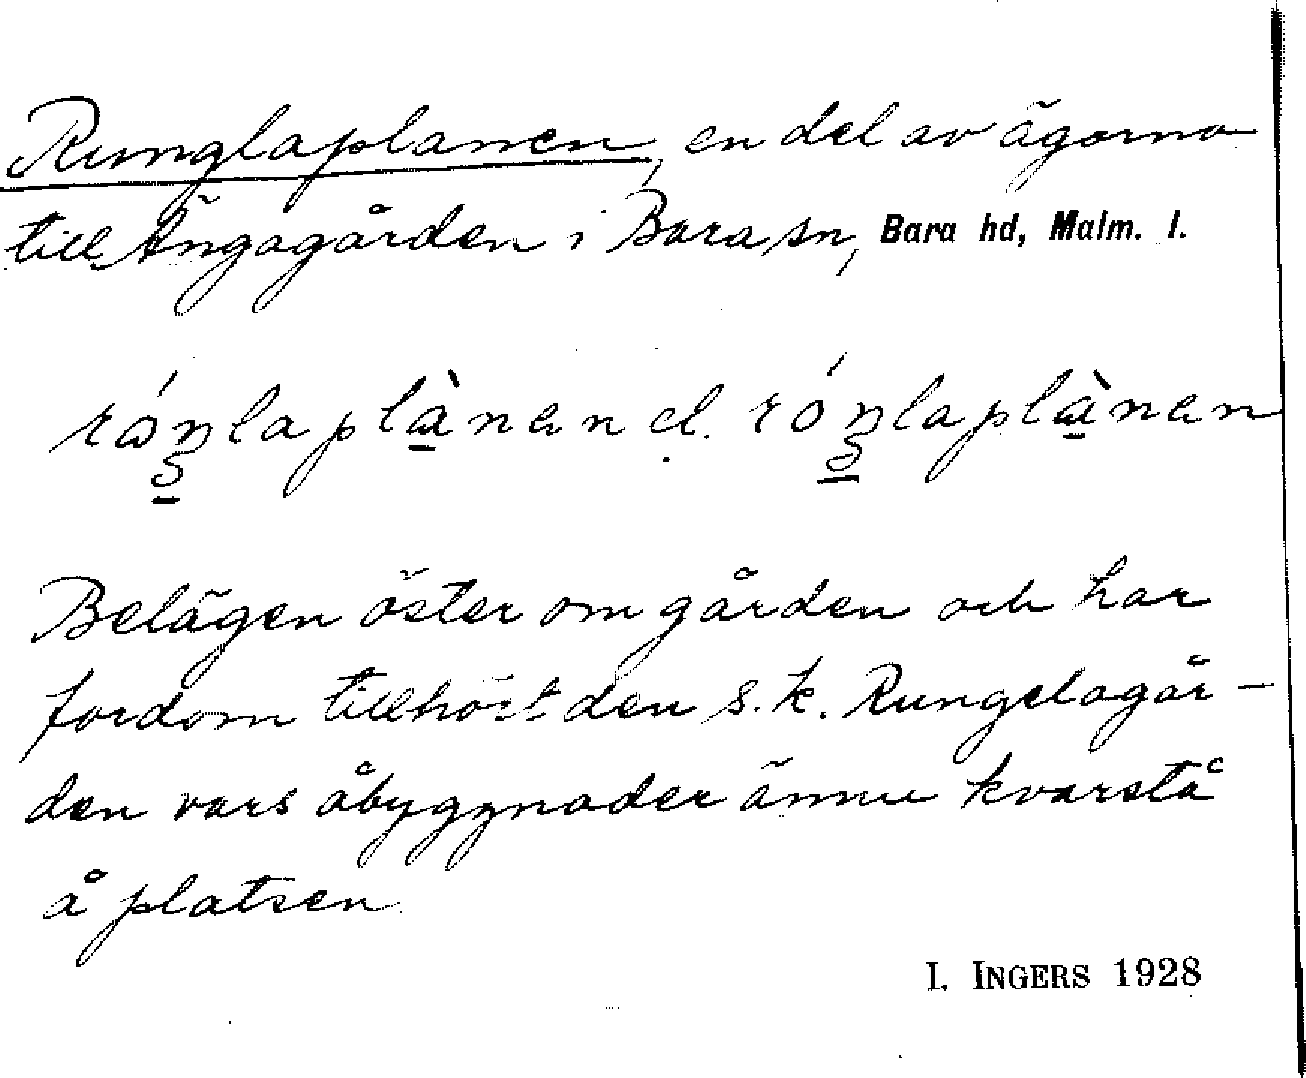 Runglaplanen, en del av ägorna
till Ängagården i Bara sn, Bara hd, Malm. l.
el.
Belägen öster om gården och har
fordom tillhört den s.k. Rungelagår-
den vars åbyggnader ännu kvarstå
å platsen.
I. INGERS 1928